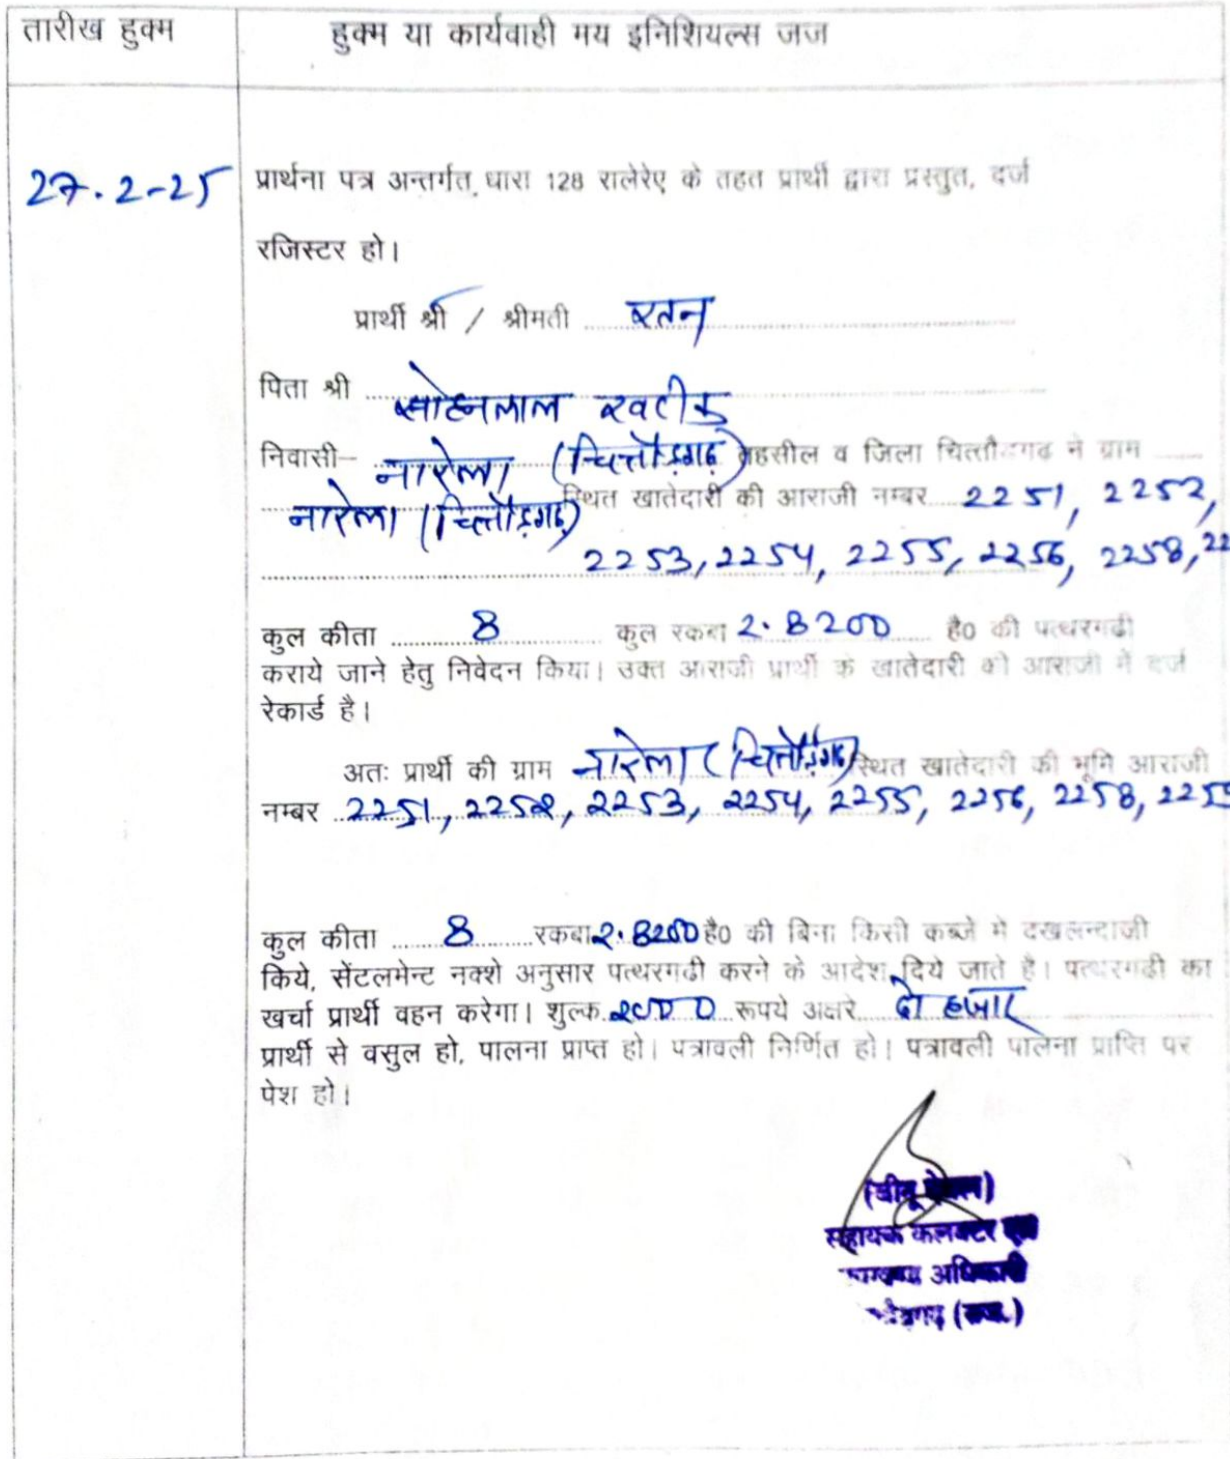 तारीख हुक्म
हुक्म या कार्यवाही मय इनिशियल्स जज
27.2-25
प्रार्थना पत्र अन्तर्गत धारा 128 रालेरेए के तहत प्रार्थी द्वारा प्रस्तुत, दर्ज
रजिस्टर हो।
प्रार्थी श्री / श्रीमती रतन
पिता श्री सोहनलाल खटीक
निवासी- नारेला (चित्तौड़गढ़) तहसील व जिला चित्तौडगढ ने ग्राम
नारेला (चित्तौड़गढ़) स्थित खातेदारी की आराजी नम्बर 2251, 2252,
2253, 2254, 2255, 2256, 2258, 22
कुल कीता 8 कुल रकबा 2.8200 है0 की पत्थरगढी
कराये जाने हेतु निवेदन किया। उक्त आराजी प्रार्थी के खातेदारी की आराजी में दर्ज
रेकार्ड है।
अतः प्रार्थी की ग्राम नारेला (चित्तौड़गढ़) स्थित खातेदारी की भूमि आराजी
नम्बर 2251, 2252, 2253, 2254, 2255, 2256, 2258, 2259
कुल कीता 8 रकबा 2.8200 है0 की बिना किसी कब्जे मे दखलन्दाजी
किये, सेंटलमेन्ट नक्शे अनुसार पत्थरगढी करने के आदेश दिये जाते है। पत्थरगढी का
खर्चा प्रार्थी वहन करेगा। शुल्क 2000 रूपये अक्षरे दो हजार
प्रार्थी से वसुल हो, पालना प्राप्त हो। पत्रावली निर्णित हो। पत्रावली पालना प्राप्ति पर
पेश हो।
सहायक कलक्टर एवं
अधिकारी
(राज.)